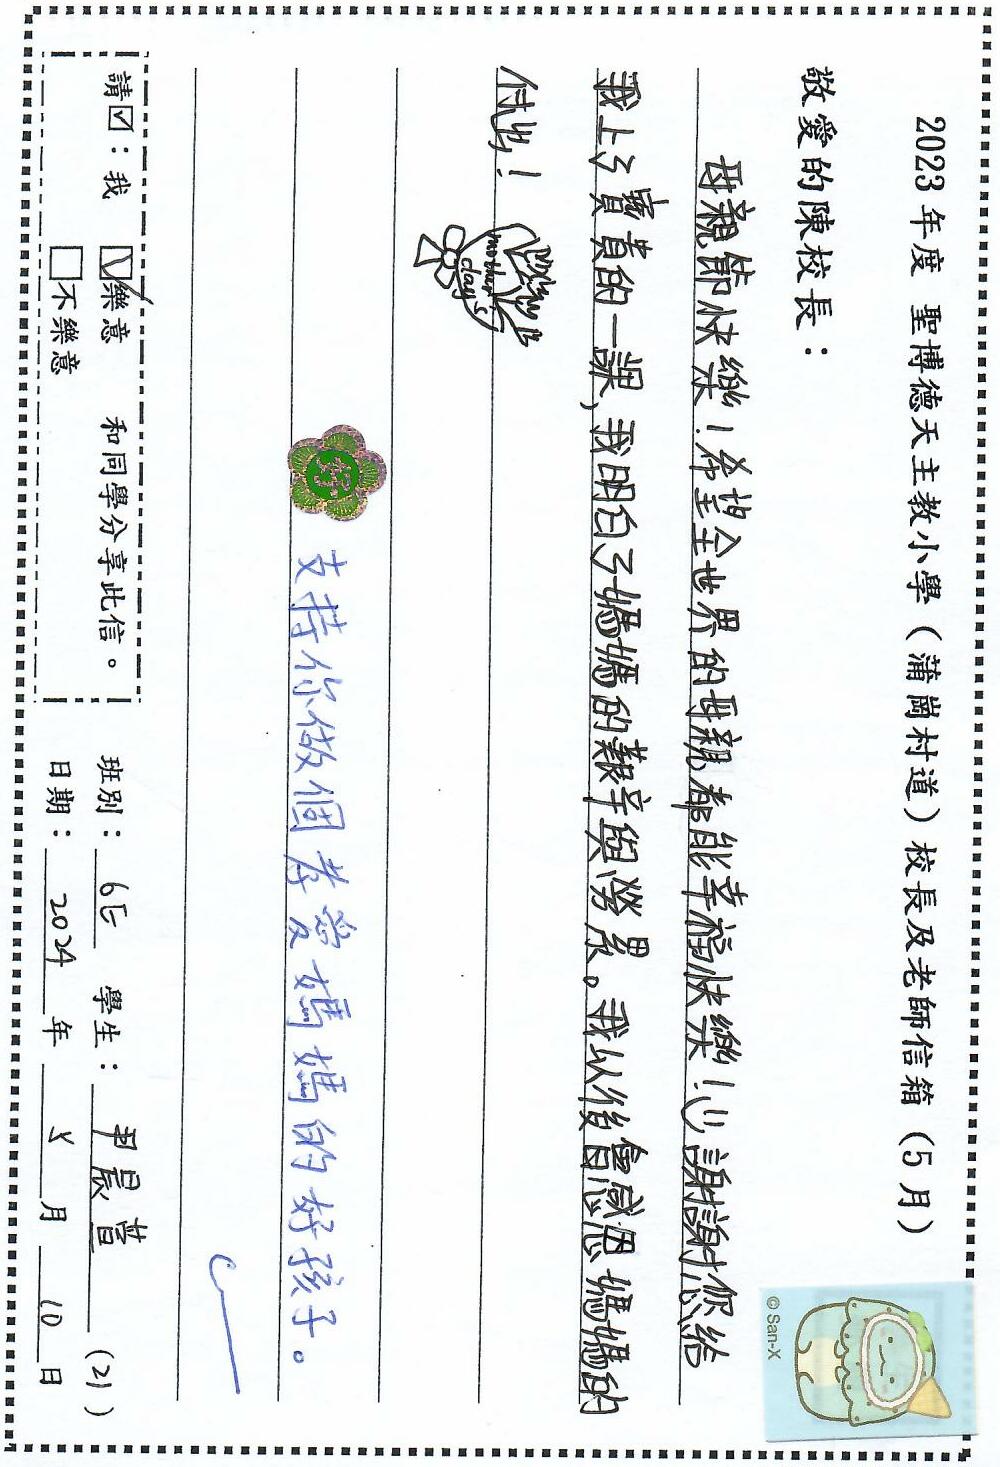 2023 年度 聖博德天主教小學（蒲崗村道）校長及老師信箱（5 月）
敬愛的陳校長：
母親節快樂！希望全世界的母親都能幸福快樂！謝謝您給
我上了寶貴的一課，我明白了媽媽的艱辛與勞累。我以後會感恩媽媽的
付出！
mother
day's
支持你做個孝愛媽媽的好孩子。
請☑：我 ☑樂意 和同學分享此信。
□不樂意
班別：6E 學生：晨 (21)
日期：2024 年 5 月 10 日
© San-X